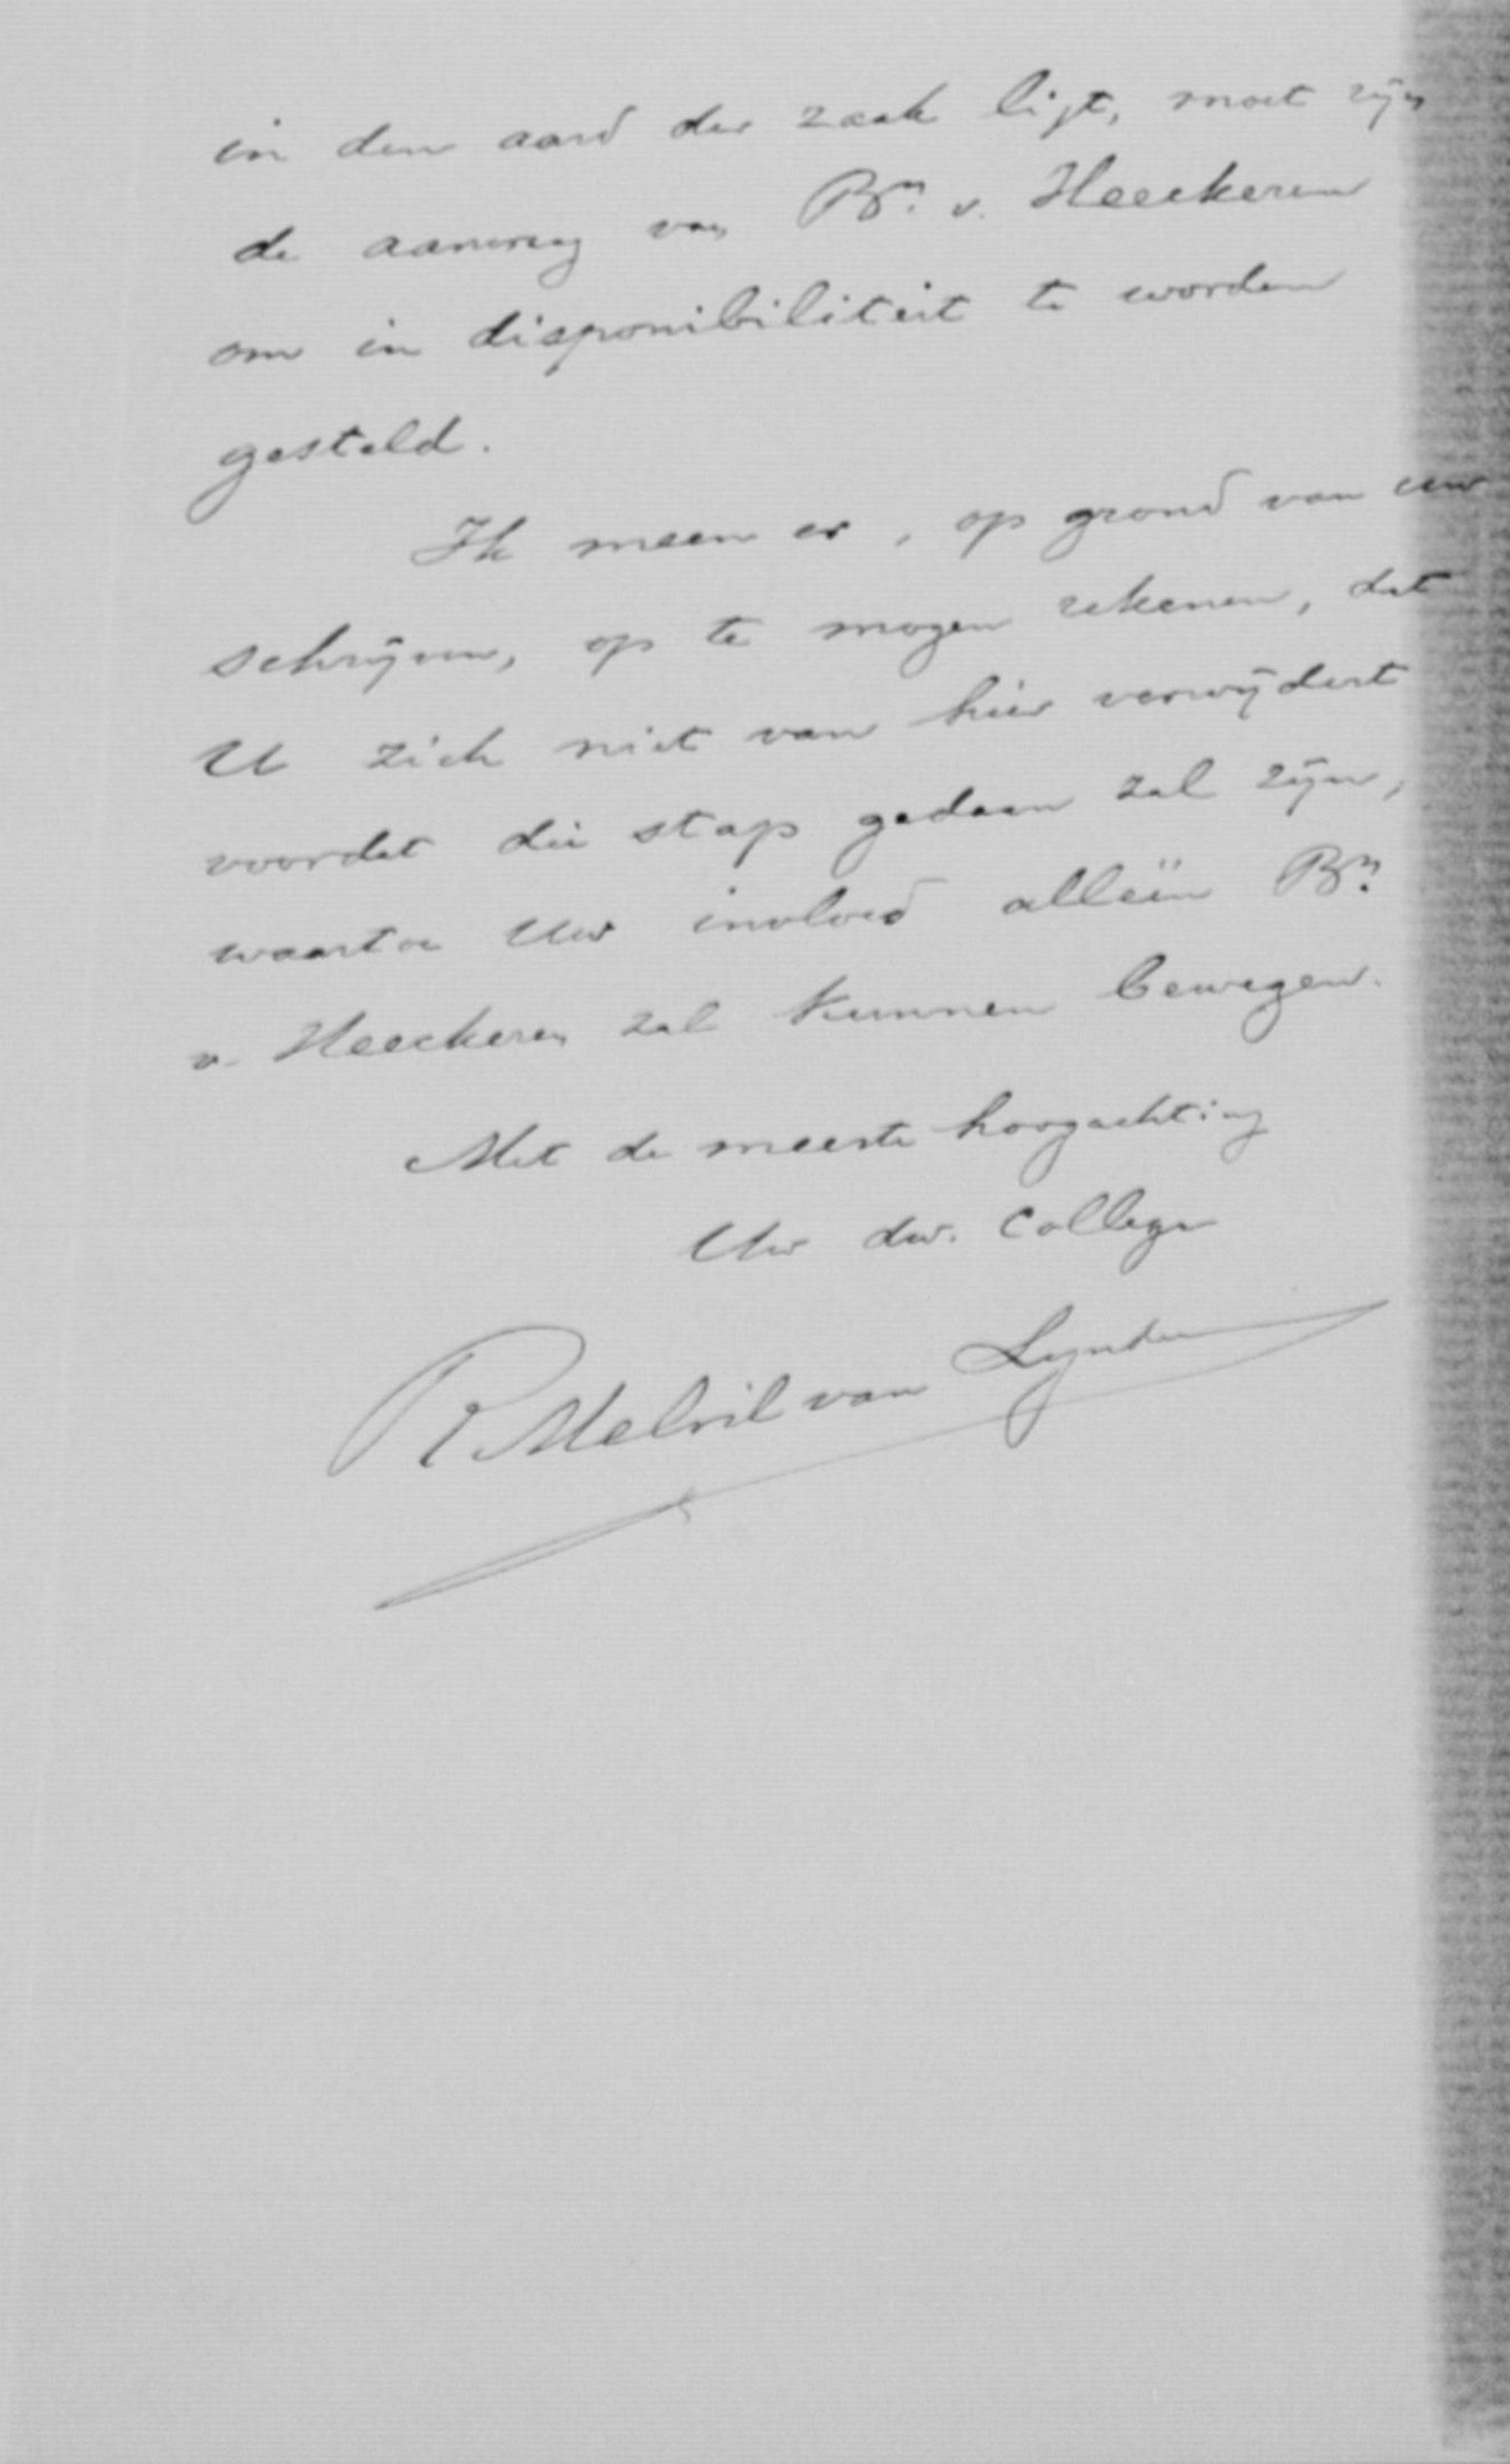 in den aard der zaak ligt, moet zijn
de aanvrag van Bn. v. Heeckeren
om in disponibiliteit te worden
gesteld.
Ik meen er, op grond van uw
schrijven, op te mogen rekenen, dat
U zich niet van hier verwijdert
voordat die stap gedaan zal zijn,
waartoe Uw invloed alleën Bn.
v. Heeckeren zal kunnen bewegen.
Met de meeste hoogachting
Uw dw. Collega
R Melvil van Lynden